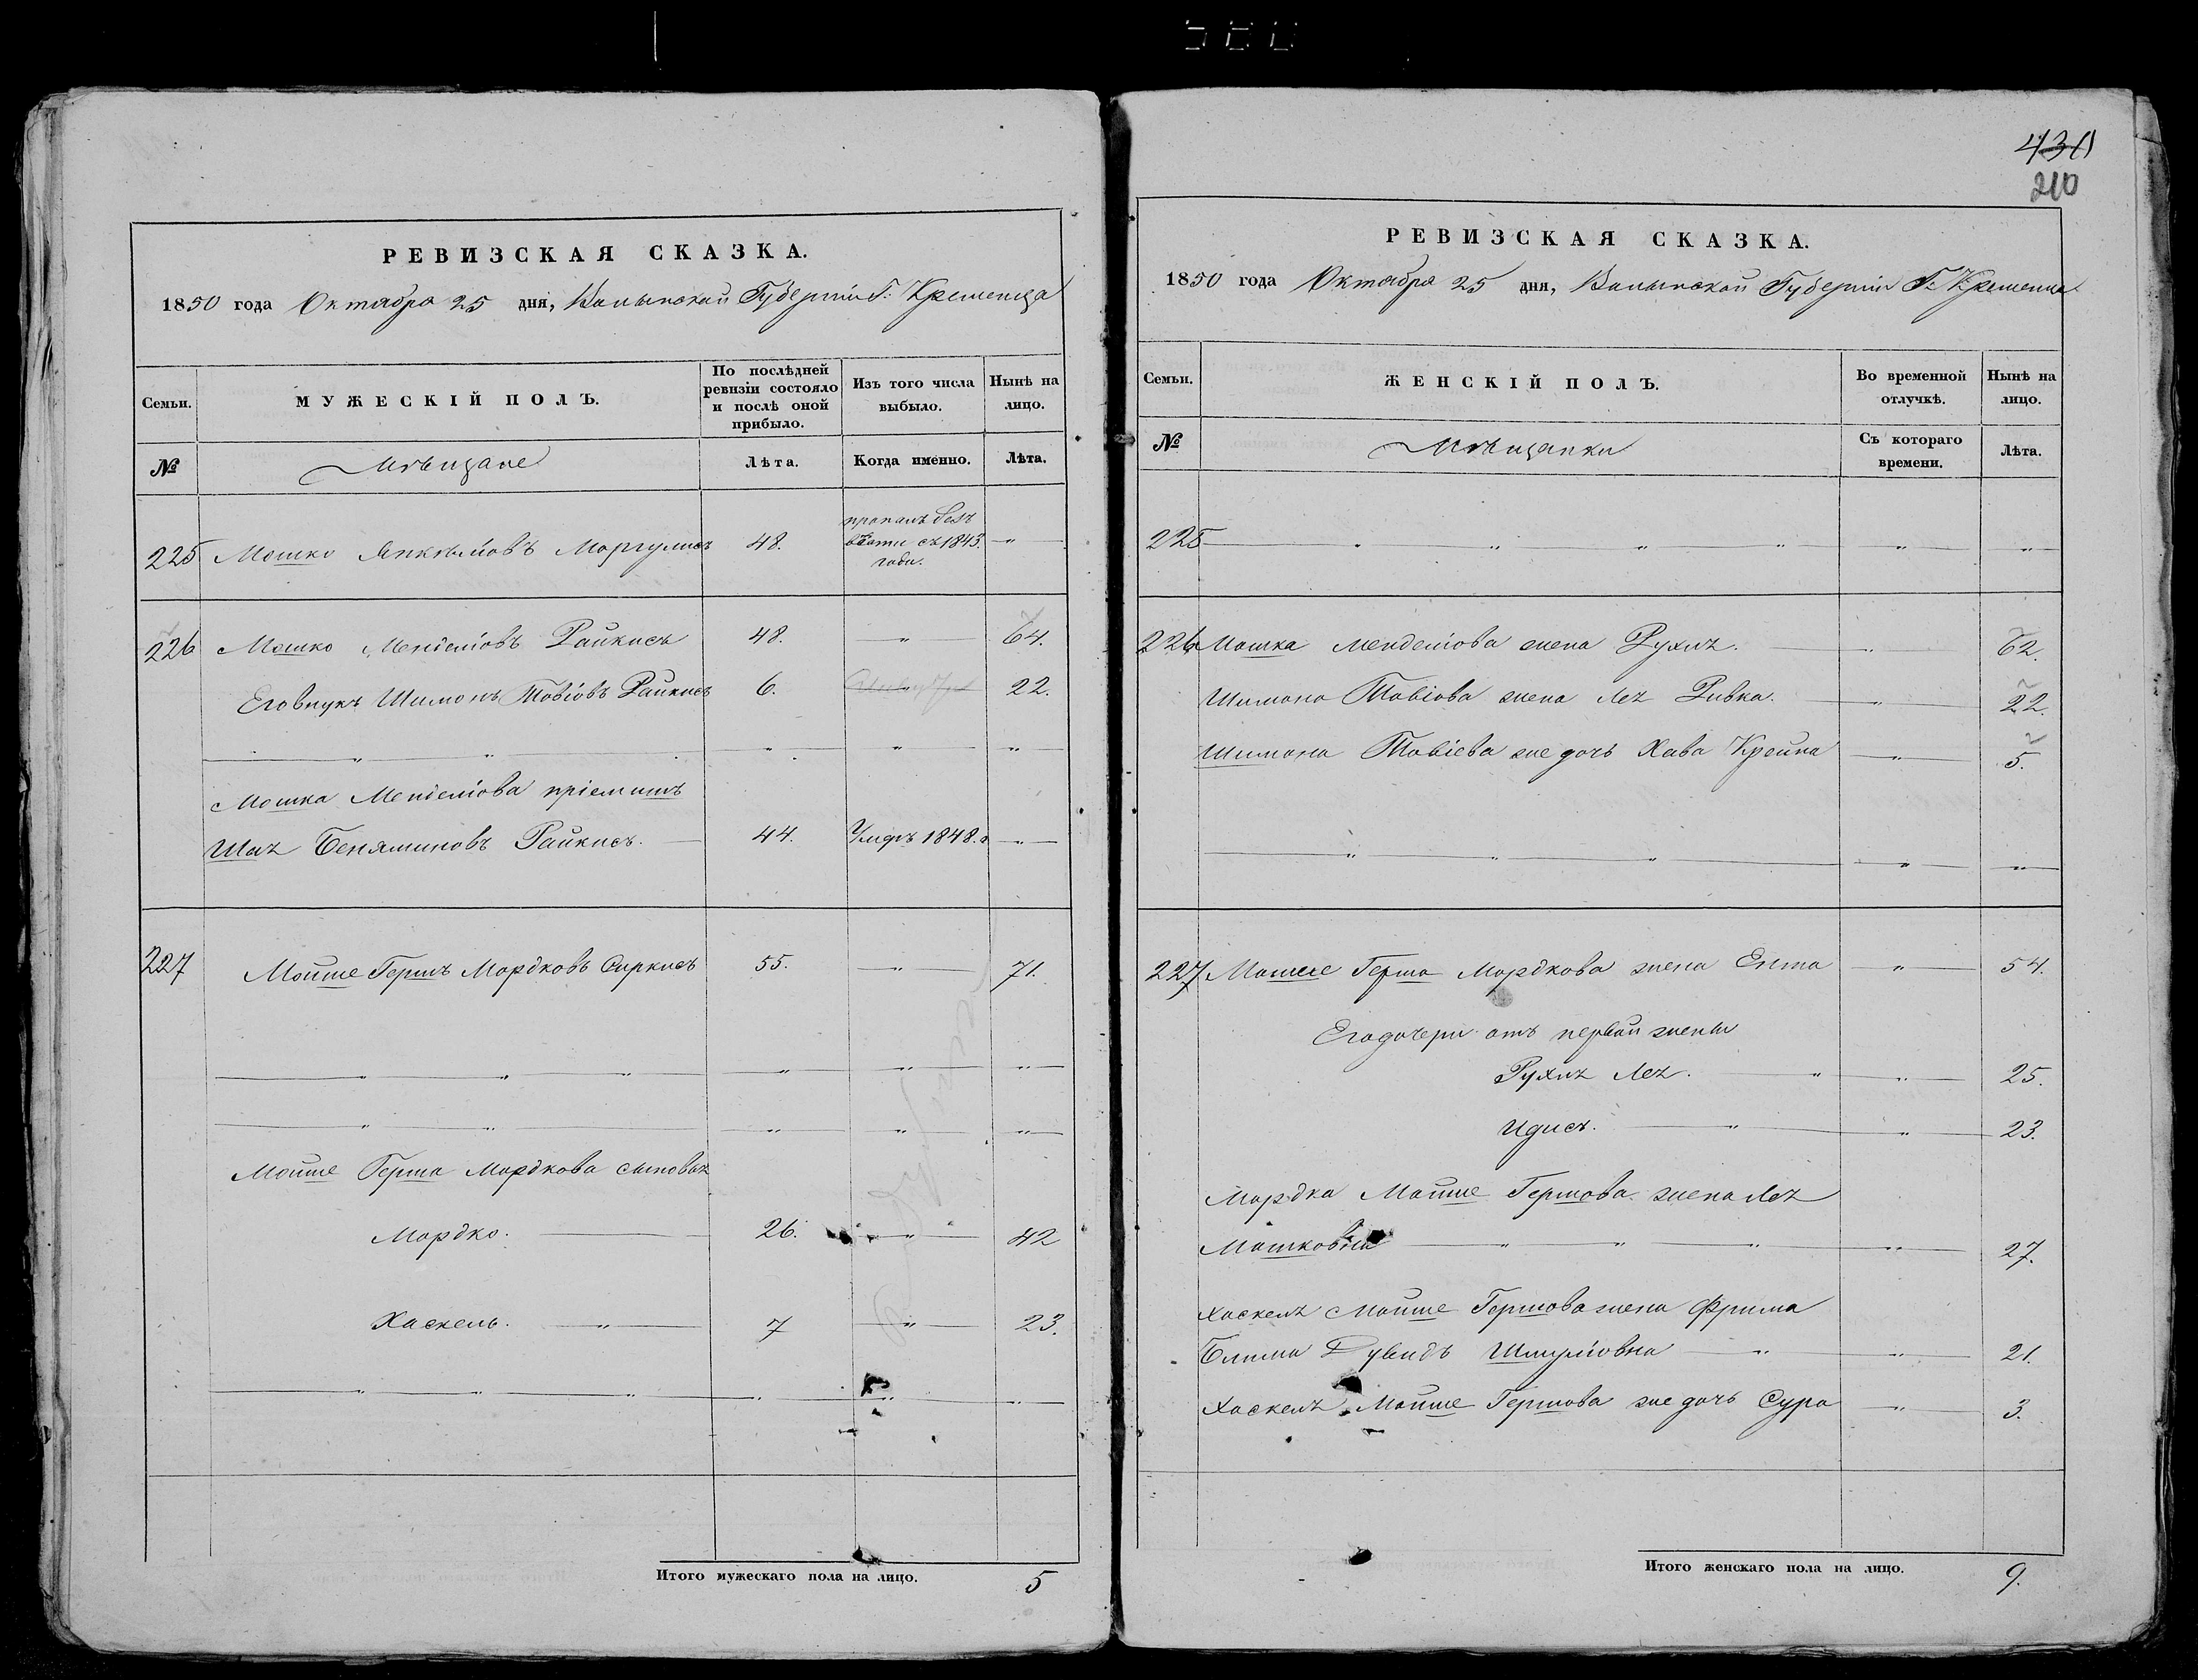 430
210
РЕВИЗСКАЯ СКАЗКА.
1850 года Октября 25 дня, Волынской Губерніи Г. Кременца
Семьи. МУЖЕСКІЙ ПОЛЪ. По послѣдней ревизіи состояло и послѣ оной прибыло. Изъ того числа выбыло. Нынѣ на лицо.
№ Мѣщане Лѣта. Когда именно. Лѣта.
225 Мошко Янкелiовъ Моргулисъ 48. пропалъ безъ вѣсти съ 1843. года. "
226 Мошко Менделiовъ Райкисъ 48. " 64.
Его внукъ Шимонъ Товiовъ Райкисъ 6. 22.
" " " " "
Мошка Менделiова пріемышъ
Шаz Беняминовъ Райкисъ. 44. Умеръ 1848. г "
227 Мойше Гершъ Мордковъ Сиркисъ 55. " 71.
" " " " " "
" " " " "
Мойше Герша Мордкова сыновья
Мордко. 26. " 42
Хаскель. " 7 " 23.
" " " " " "
Итого мужескаго пола на лицо. 5
РЕВИЗСКАЯ СКАЗКА.
1850 года Октября 25 дня, Волынской Губерніи Г. Кременца
Семьи. ЖЕНСКІЙ ПОЛЪ. Во временной отлучкѣ. Нынѣ на лицо.
№ Мѣщанки Съ котораго времени. Лѣта.
225 " " " " " "
226 Мошка Менделiова жена Рухля. " 62.
Шимона Товiова жена Лея Ривка. " 22.
Шимона Товіева же дочь Хава Крейна " 5.
" " " " "
227 Мойше Герша Мордкова жена Ента " 54.
Его дочери отъ первой жены
Рухля Лея. " " 25.
Идись. " " 23.
Мордка Мойше Гершова жена Лея
Мошковна " " " " 27.
Хаскеля Мойше Гершова жена Фрима
Блима Дувидъ Шмулiовна " " 21.
Хаскеля Мойше Гершова же дочь Сура " 3.
Итого женскаго пола на лицо. 9.